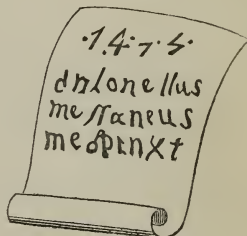 ·1·4·7·5·
antonellus
meſſaneus
me pinxt